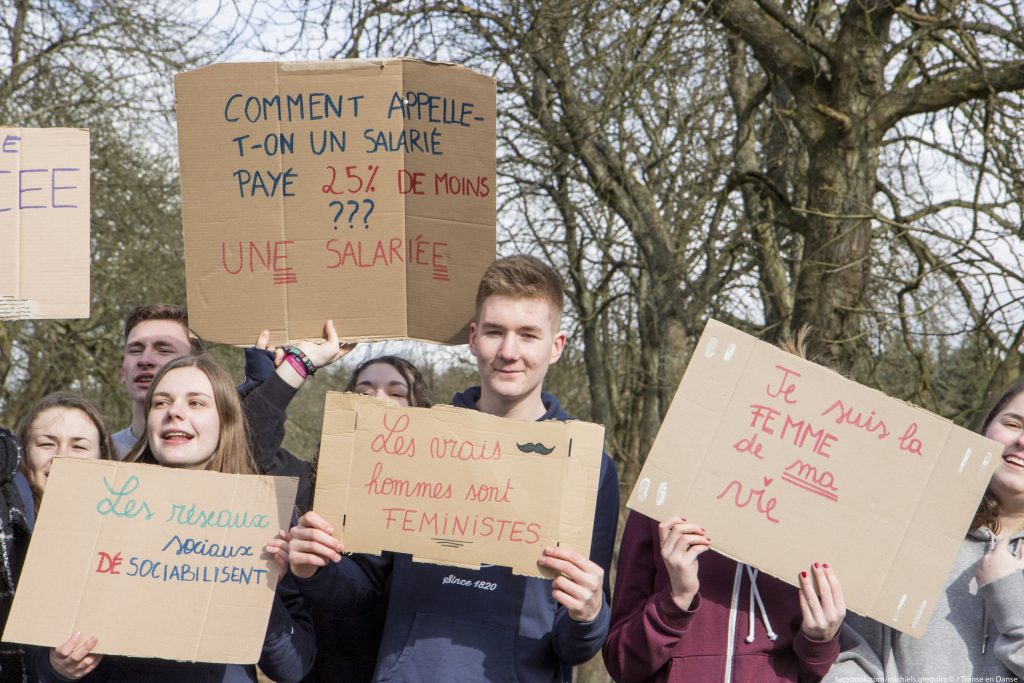 E
CEE
COMMENT APPELLE-
T-ON UN SALARIÉ
PAYÉ 25% DE MOINS
???
UNE SALARIÉE
Les vrais
hommes sont
FEMINISTES
Since 1820
Les réseaux
sociaux
DÉSOCIABILISENT
Je suis la
FEMME
de ma
vie
facebook.com/michiels.gregoire © / Transe en Danse